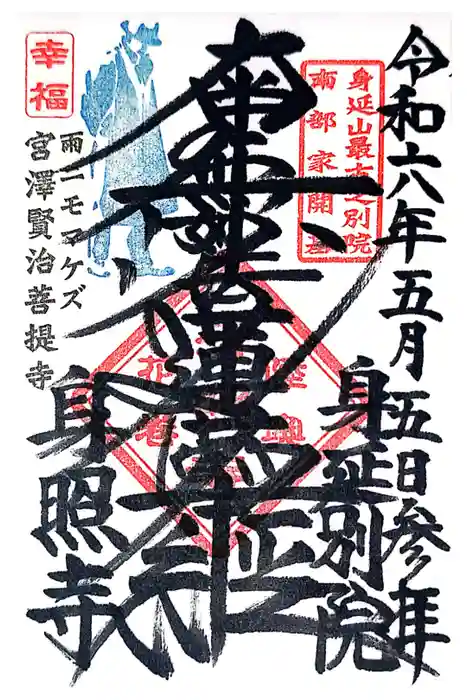 令和六年五月五日参拝
身延山最古之別院
南部家開基
身延別院
南無妙法蓮華経
幸福
雨ニモマケズ
宮澤賢治菩提寺
身照寺